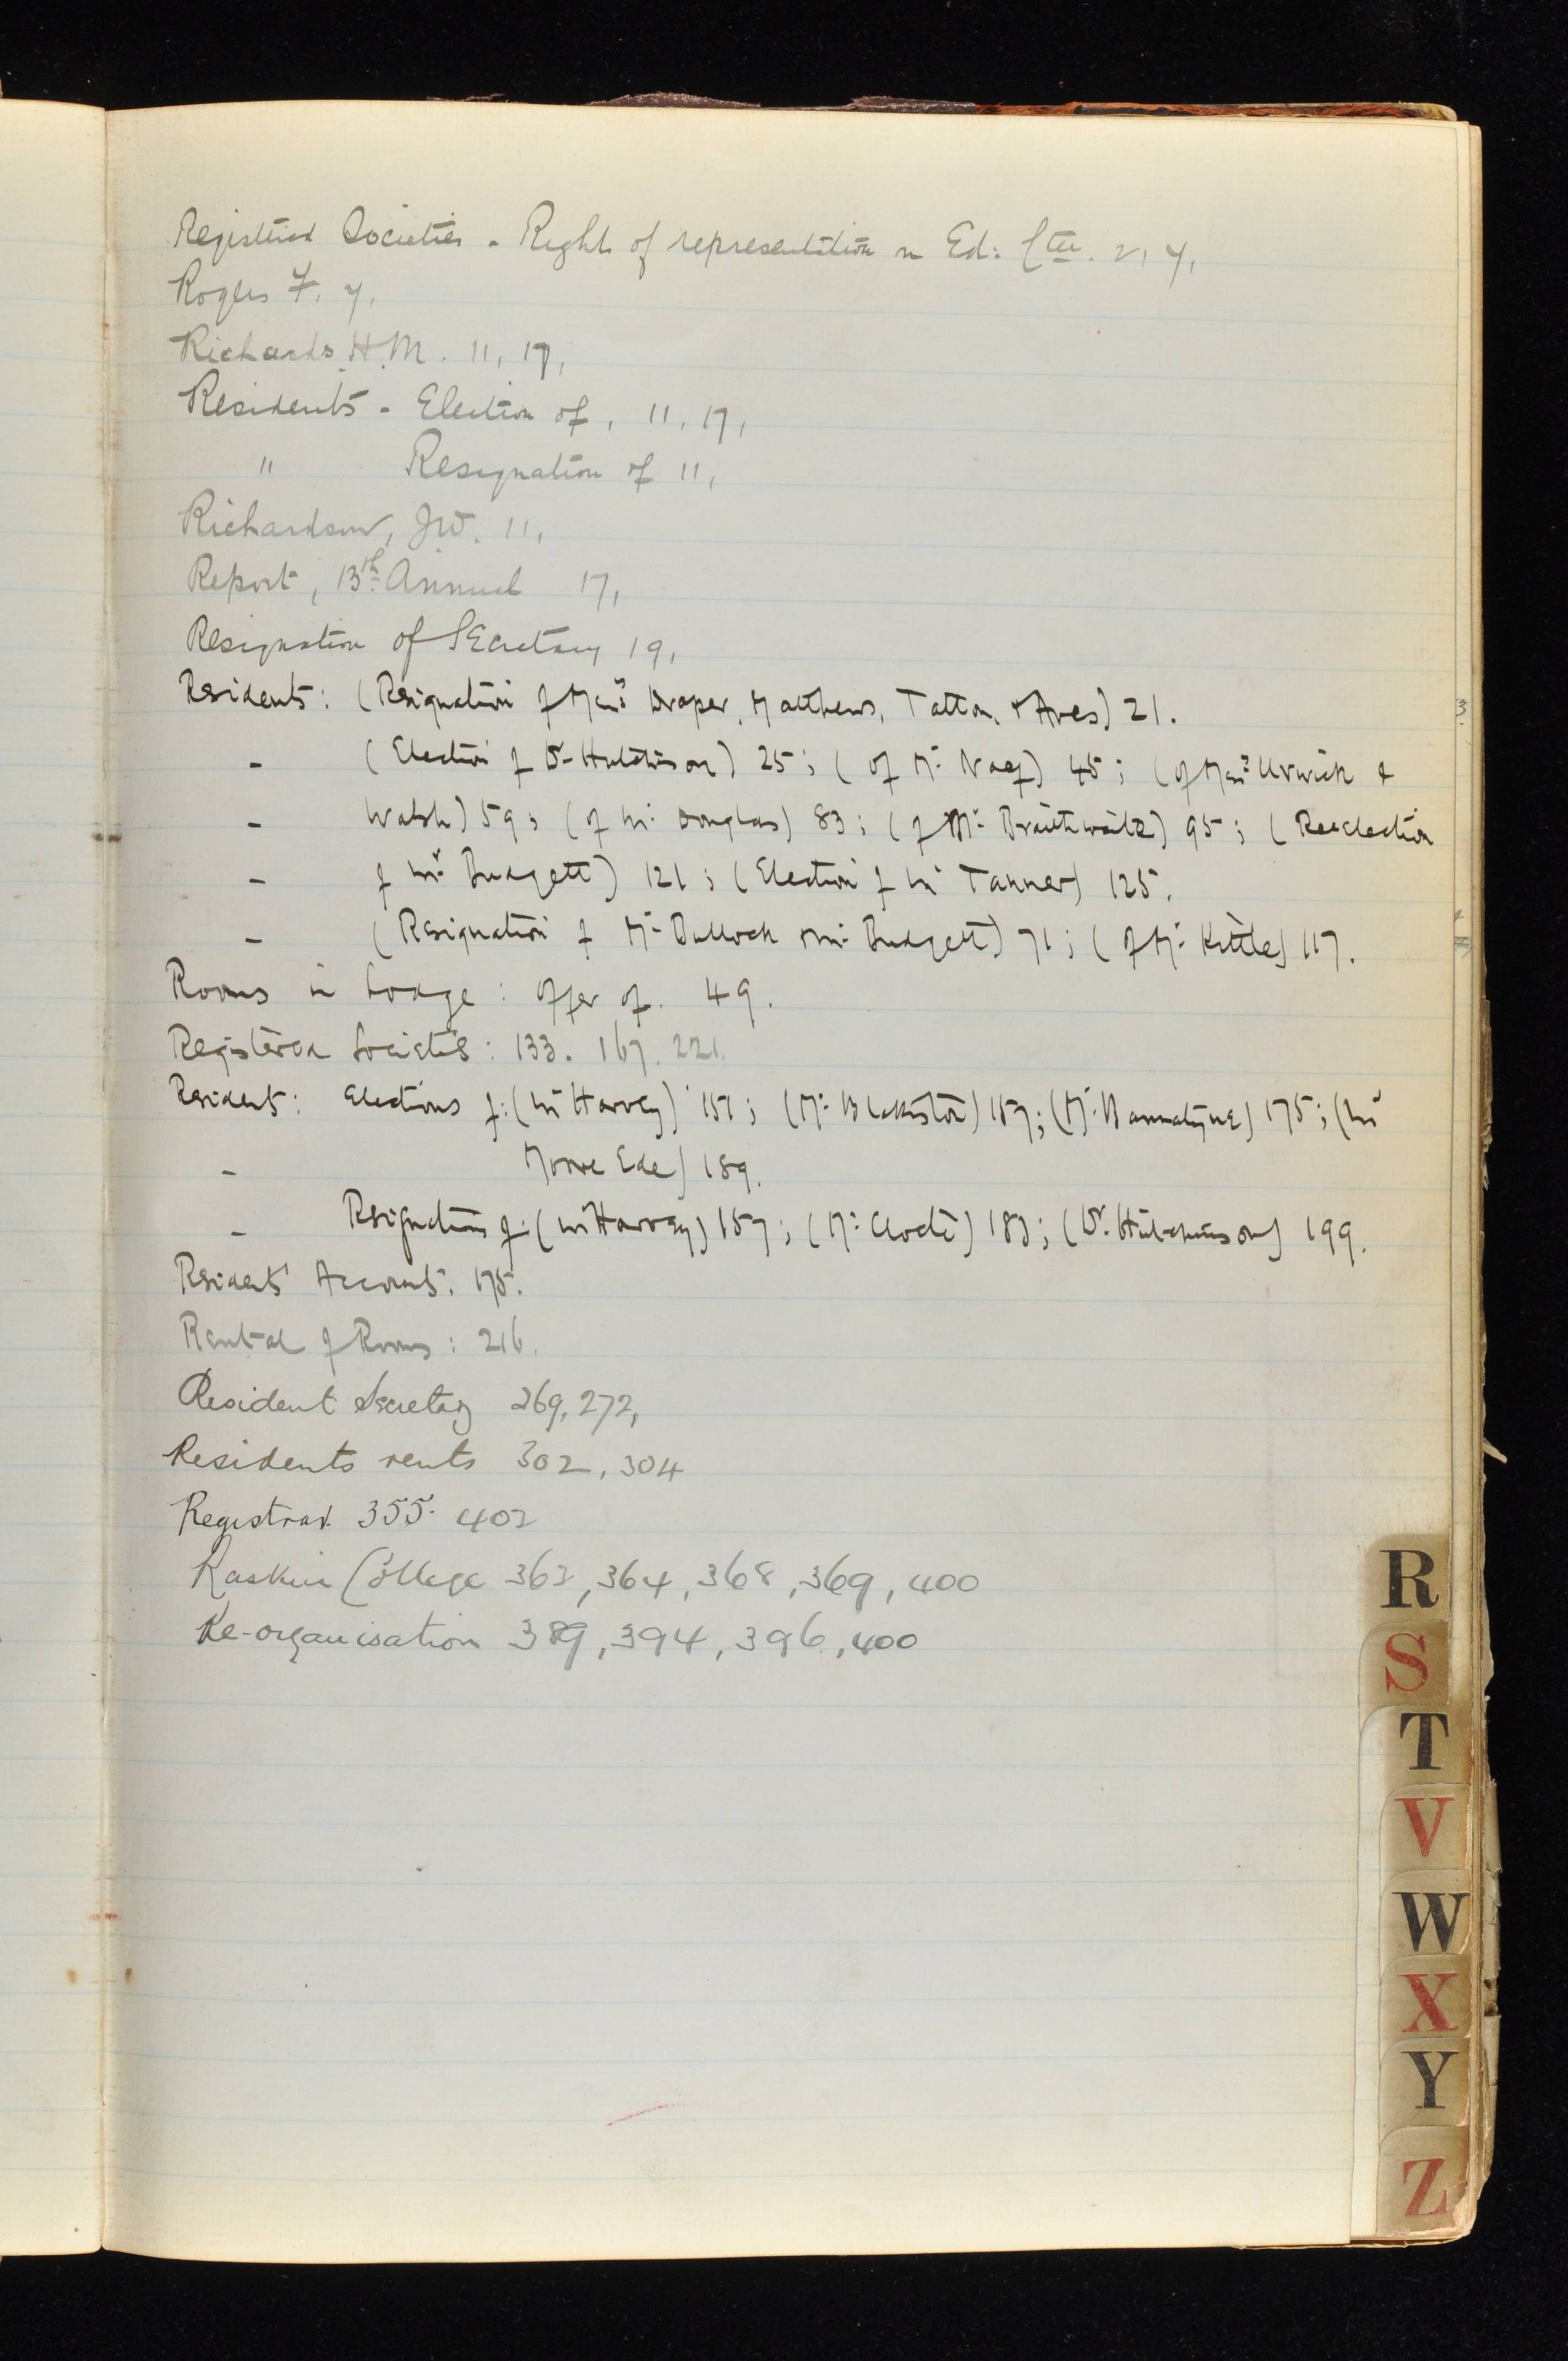 Registered Societies - Right of representation on Ed: Ctee. 2, 7,
Rogers F. 7,
Richards H.M. 11, 17,
Residents - Election of, 11, 17,
" Resignation of 11,
Richardson, J.W. 11,
Report, 13th Annual 17,
Resignation of Secretary 19,
Residents: (Resignation of Messrs Draper, Matthews, Tatton, & Aves) 21.
- (Election of Dr Hutchinson) 25; (of Mr Naef) 45; (of Messrs Urwick &
- Walsh) 59; (of Mr Douglas) 83; (of Mr Braithwaite) 95; (Reelection
- of Mr Budgett) 121; (Election of Mr Tanner) 125.
- (Resignation of Mr Bullock & Mr Budgett) 71; (of Mr Kittle) 117.
Rooms in Lodge: offer of. 49.
Registered Societies: 133. 167. 221.
Resident: Elections of: (Mr Harvey) 151; (Mr Blakiston) 157; (Mr Bannatyne) 175; (Mr
- Moore Ede) 189.
- Resignations of: (Mr Harvey) 157; (Mr Clode) 183; (Dr. Hutchinson) 199.
Residents' Accounts. 175.
Rental of Rooms: 216.
Resident Secretary 269, 272,
Residents rents 302, 304
Registrar 355. 402
Ruskin College 363, 364, 368, 369, 400
Re-organisation 389, 394, 396, 400
R
S
T
V
W
X
Y
Z